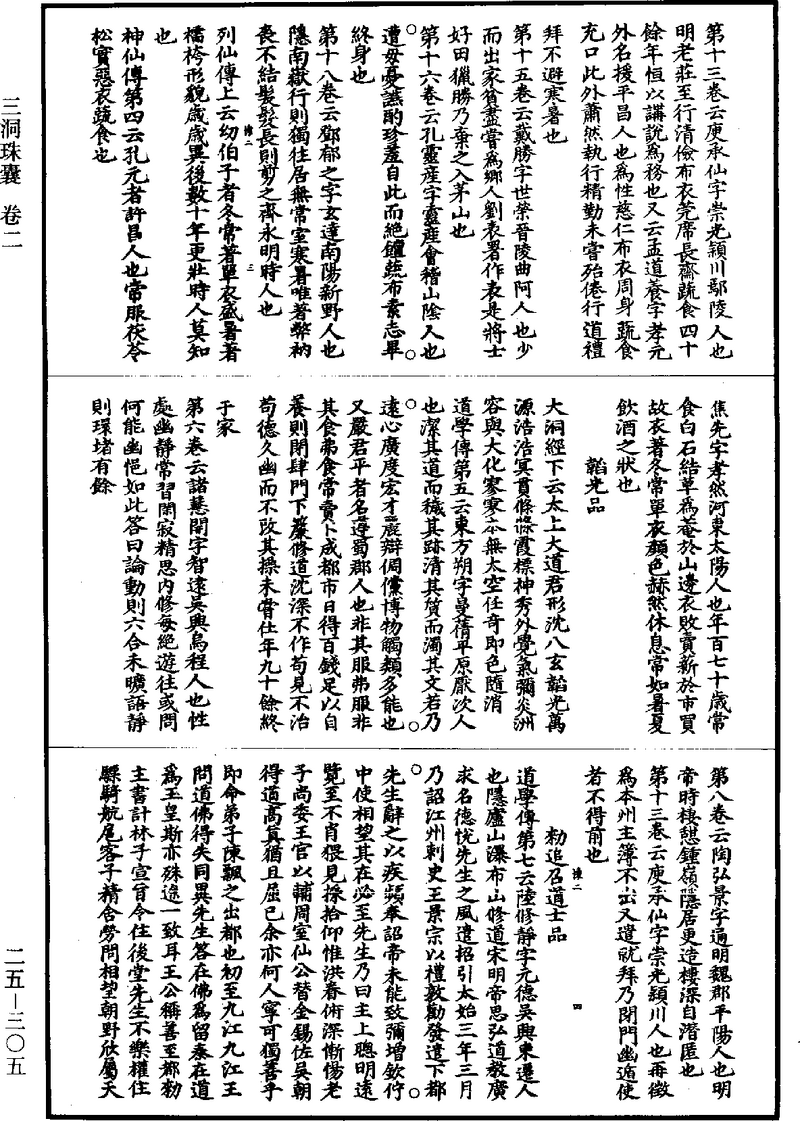 三洞珠囊 卷二
二五—三〇五
第十三卷云庾承仙字崇光潁川鄢陵人也
明老莊至行清儉布衣莞席長齋蔬食四十
餘年恒以講說為務也又云孟道養字孝元
外名援平昌人也為性慈仁布衣周身蔬食
充口此外蕭然執行精勤未嘗殆倦行道禮
拜不避寒暑也
第十五卷云戴勝字世榮晉陵曲阿人也少
而出家貧盡嘗為鄉人劉表署作表是將士
好田獵勝乃棄之入茅山也
第十六卷云孔靈産字靈産會稽山陰人也
遭母憂讌酌珍羞自此而絶饘蔬布素志畢
終身也
第十八卷云鄧郁之字玄達南陽新野人也
隱南嶽行則獨往居無常室寒暑唯著弊衲
喪不結髮髮長則剪之齊永明時人也
列仙傳上云幼伯子者冬常著單衣盛暑著
襦袴形貌歲歲異後數十年更壯時人莫知
也
神仙傳第四云孔元者許昌人也常服茯苓
松實惡衣蔬食也
焦先字孝然河東太陽人也年百七十歲常
食白石結草為菴於山邊衣敗賣薪於市買
故衣著冬常單衣顏色赫然休息常如暑夏
飲酒之狀也
韜光品
大洞經下云太上大道君形沈八玄韜光萬
源浩浩冥貫條條霞標神秀外覺氣彌炎洲
容與大化寥寥本無太空任奇即色隨消
道學傳第五云東方朔字曼蒨平原厭次人
也潔其道而穢其跡清其質而濁其文若乃
遠心廣度宏才麗辯倜儻博物觸類多能也
又嚴君平者名遵蜀郡人也非其服弗服非
其食弗食常賣卜成都市日得百錢足以自
養則閉肆門下簾修道沈深不作苟見不治
苟德久幽而不改其操未嘗仕年九十餘終
于家
第六卷云諸慧開字智遠吳興烏程人也性
處幽靜常習閑寂精思內修每絶遊往或問
何能幽悒如此答曰論動則六合未曠語靜
則環堵有餘
第八卷云陶弘景字通明魏郡平陽人也明
帝時棲憩鍾嶺隱居更造樓深自潛匿也
第十三卷云庾承仙字崇光潁川人也再徵
為本州主簿不出又遣就拜乃閉門幽遁使
者不得前也
勑追召道士品
道學傳第七云陸修靜字元德吳興東遷人
也隱廬山瀑布山修道宋明帝思弘道教廣
求名德悅先生之風遣招引太始三年三月
乃詔江州刺史王景宗以禮敦勸發遣下都
先生辭之以疾頻奉詔帝未能致彌增欽佇
中使相望其在必至先生乃曰主上聰明遠
覽至不肖猥見採拾仰惟洪眷俯深慚惕老
子尚委王官以輔周室仙公替金錫佐吳朝
得道高真猶且屈己余亦何人寧可獨善乎
即命弟子陳飄之出都也初至九江九江王
問道佛得失同異先生答在佛為留秦在道
為玉皇斯亦殊途一致耳王公稱善至都勑
主書計林子宣旨令住後堂先生不樂權住
驃騎航尾客子精舍勞問相望朝野欣屬天